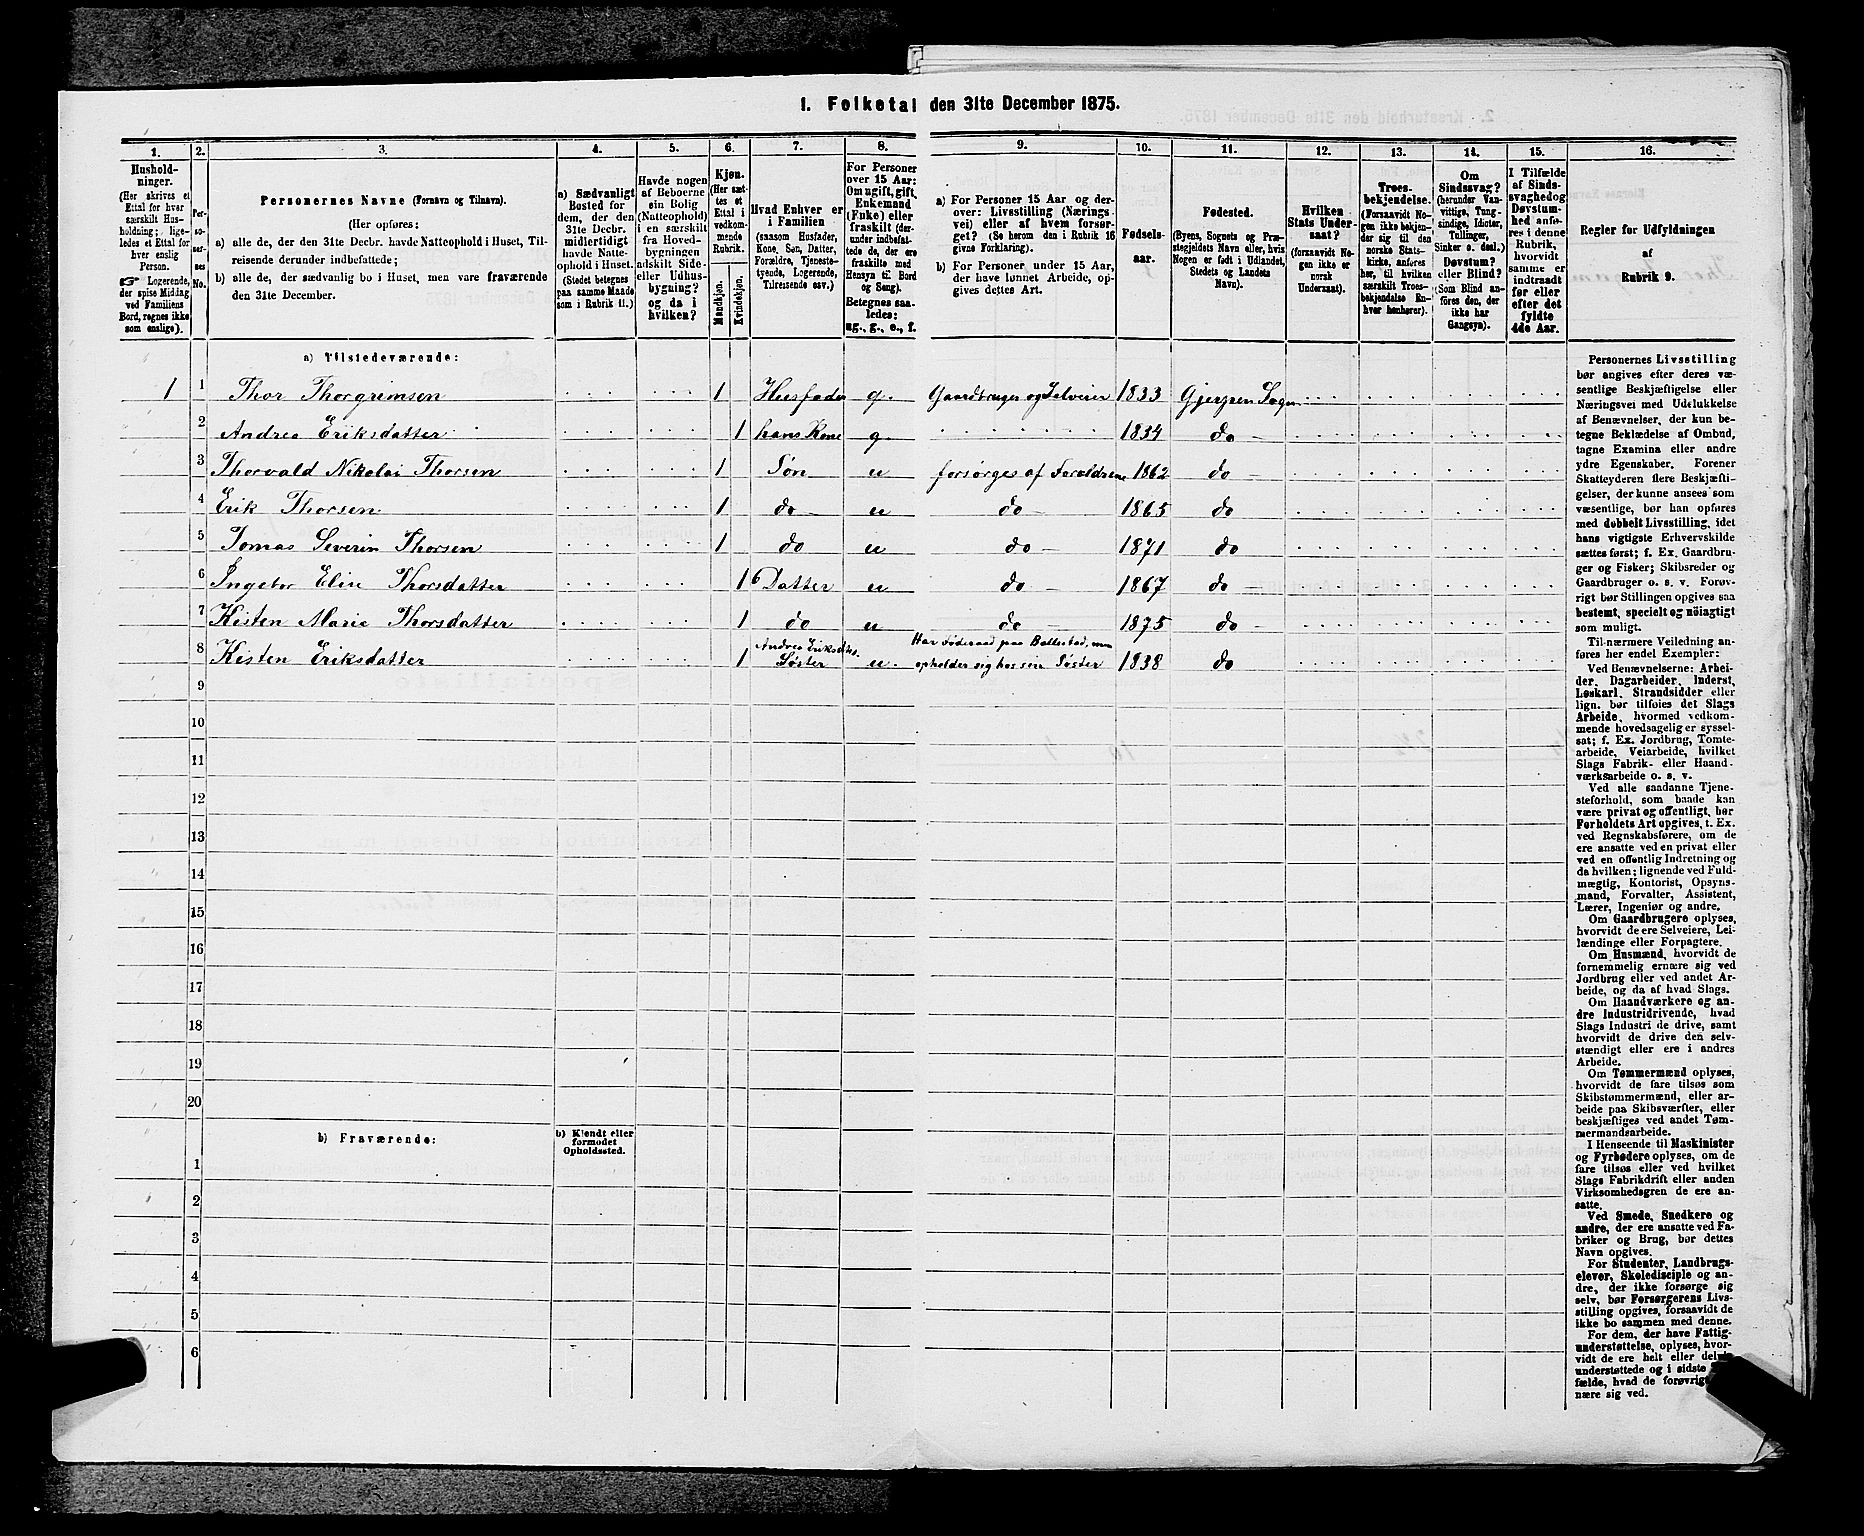 1. Folketal den 31te December 1875.
1.
Hushold-
ninger.
(Her skrives et
Ettal for hver
særskilt Hus-
holdning; lige-
ledes et Ettal for
hver enslig
Person.
☞ Logerende,
der spise Middag
ved Familiens
Bord, regnes ikke
som enslige).
2.
Per-
so-
ner-
nes
No.
3.
Personernes Navne (Fornavn og Tilnavn).
(Her opføres:
a) alle de, der den 31te Decbr. havde Natteophold i Huset, Til-
reisende derunder indbefattede;
b) alle de, der sædvanlig bo i Huset, men vare fraværende
den 31te December.
4.
a) Sædvanligt
Bosted for
dem, der den
31te Decbr.
midlertidigt
havde Natte-
ophold i Huset.
(Stedet betegnes
paa samme Maade
som i Rubrik 11.)
5.
Havde nogen
af Beboerne
sin Bolig
(Natteophold)
i en særskilt
fra Hoved-
bygningen
adskilt Side-
eller Udhus-
bygning?
og da i
hvilken?
6.
Kjøn.
(Her sæt-
tes et
Ettal i
vedkom-
mende
Rubrik.
Mandkjøn.
Kvindekjøn.
7.
Hvad Enhver er
i Familien
(saasom Husfader,
Kone, Søn, Datter,
Forældre, Tjeneste-
tyende, Logerende,
Tilreisende osv.)
8.
For Personer
over 15 Aar:
Om ugift, gift,
Enkemand
(Enke) eller
fraskilt (der-
under indbefat-
tede de, der ere
fraskilte med
Hensyn til Bord
og Seng).
Betegnes saa-
ledes:
ug., g., e., f.
9.
a) For Personer 15 Aar og der-
over: Livsstilling (Nærings-
vei) eller af hvem forsør-
get? (Se herom den i Rubrik 16
givne Forklaring).
b) For Personer under 15 Aar,
der have lønnet Arbeide, op-
gives dettes Art.
10.
Fødsels-
aar.
11.
Fødested.
(Byens, Sognets og Præ-
stegjeldets Navn eller, hvis
Nogen er født i Udlandet,
Stedets og Landets
Navn).
12.
Hvilken
Stats Under-
saat?
(forsaavidt No-
gen ikke er
norsk
Undersaat).
13.
Troes-
bekjendelse.
(Forsaavidt No-
gen ikke bekjen-
der sig til den
norske Stats-
kirke, anføres
her, til hvilken
særskilt Troes-
bekjendelse En-
hver henhører).
14.
Om
Sindssvag?
(herunder Van-
vittige, Tung-
sindige, Idioter,
Tullinger,
Sinker o. desl.).
Døvstum?
eller Blind?
(Som Blind an-
føres den, der
ikke har
Gangsyn).
15.
I Tilfælde
af Sinds-
svaghed og
Døvstum-
hed anfø-
res i denne
Rubrik,
hvorvidt
samme er
indtraadt
før eller
efter det
fyldte
4de Aar.
16.
Regler for Udfyldningen
af
Rubrik 9.
a) Tilstedeværende:
1 1 Thor Thorgrimsen 1 Husfader g. Gaardbruger og Selveier 1833 Gjerpen Sogn
2 Andrea Eriksdatter 1 hans Kone g. 1834 do
3 Thorvald Nikolai Thorsen 1 Søn u forsørges af Forældrene 1862 do
4 Erik Thorsen 1 do u do 1865 do
5 Tomas Severin Thorsen 1 do u do 1871 do
6 Ingebor Elise Thorsdatter 1 Datter u do 1867 do
7 Kisten Marie Thorsdatter 1 do u do 1875 do
Andrea Eriksdtrs. Har Føderaad paa Ballestad, men
8 Kisten Eriksdatter 1 Søster u. opholder sig hos sin Søster 1838 do
9
10
11
12
13
14
15
16
17
18
19
20
b) Fraværende:
b) Kjendt eller
formodet
Opholdssted.
1
2
3
4
5
6
Personernes Livsstilling
bør angives efter deres væ-
sentlige Beskjæftigelse eller
Næringsvei med Udelukkelse
af Benævnelser, der kun be-
tegne Beklædelse af Ombud,
tagne Examina eller andre
ydre Egenskaber. Forener
Skatteyderen flere Beskjæfti-
gelser, der kunne ansees som
væsentlige, bør han opføres
med dobbelt Livsstilling, idet
hans vigtigste Erhvervskilde
sættes først; f. Ex. Gaardbru-
ger og Fisker; Skibsreder og
Gaardbruger o. s. v. Forøv-
rigt bør Stillingen opgives saa
bestemt, specielt og nöiagtigt
som muligt.
Til nærmere Veiledning an-
føres her endel Exempler:
Ved Benævnelserne: Arbei-
der, Dagarbeider, Inderst,
Løskarl, Strandsidder eller
lign. bør tilføies det Slags
Arbeide, hvormed vedkom-
mende hovedsagelig er syssel-
sat; f. Ex. Jordbrug, Tomte-
arbeide, Veiarbeide, hvilket
Slags Fabrik- eller Haand-
værksarbeide o. s. v.
Ved alle saadanne Tjene-
steforhold, som baade kan
være privat og offentligt, bør
Forholdets Art opgives, t. Ex.
ved Regnskabsførere, om de
ere ansatte ved en privat eller
ved en offentlig Indretning og
da hvilken; lignende ved Fuld-
mægtig, Kontorist, Opsyns-
mand, Forvalter, Assistent,
Lærer, Ingeniør og andre.
Om Gaardbrugere oplyses,
hvorvidt de ere Selveiere, Lei-
lændinge eller Forpagtere.
Om Husmænd, hvorvidt de
fornemmelig ernære sig ved
Jordbrug eller ved andet Ar-
beide, og da af hvad Slags.
Om Haandværkere og an-
dre Industridrivende, hvad
Slags Industri de drive, samt
hvorvidt de drive den selv-
stændigt eller ere i andres
Arbeide.
Om Tømmermænd oplyses,
hvorvidt de fare tilsøs som
Skibstømmermænd, eller ar-
beide paa Skibsværfter, eller
beskjæftiges ved andet Tøm-
mermandsarbeide.
I Henseende til Maskinister
og Fyrbødere oplyses, om de
fare tilsøs eller ved hvilket
Slags Fabrikdrift eller anden
Virksomhedsgren de ere an-
satte.
Ved Smede, Snedkere og
andre, der ere ansatte ved Fa-
briker og Brug, bør dettes
Navn opgives.
For Studenter, Landbrugs-
elever, Skoledisciple og an-
dre, der ikke forsørge sig
selv, bør Forsørgerens Livs-
stilling opgives, forsaavidt de
ikke bo sammen med denne.
For dem, der have Fattig-
understøttelse, oplyses, hvor-
vidt de ere helt eller delvis
understøttede og i sidste
fælde, hvad de forøvrigt
nære sig ved.